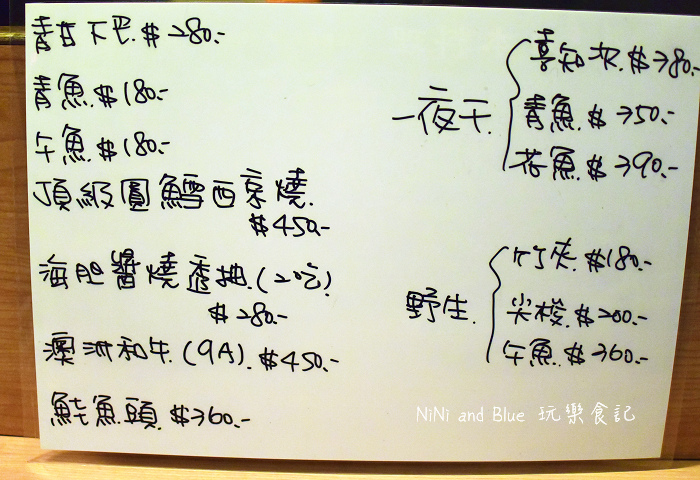 青甘下巴.$280.-
青魚.$180.-
午魚.$180.-
頂級圓鱈西京燒.
$450.-
海胆醬燒透抽.(2吃)
$280.-
澳洲和牛.(9A).$450.-
鮭魚頭.$360.-
一夜干.
喜知次.$380.-
青魚.$350.-
花魚.$390.-
野生.
竹夾.$180.-
尖梭.$200.-
午魚.$360.-
NiNi and Blue 玩樂食記